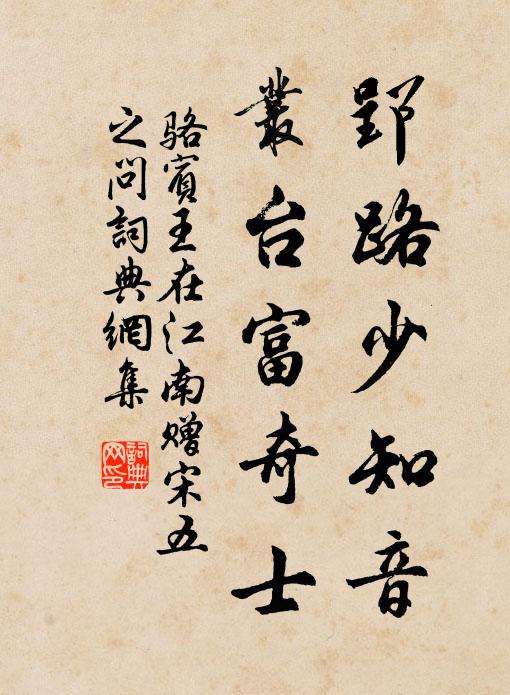 郢路少知音
叢台富奇士
駱賓王在江南贈宋五
之問詞典網集
詞典
网印